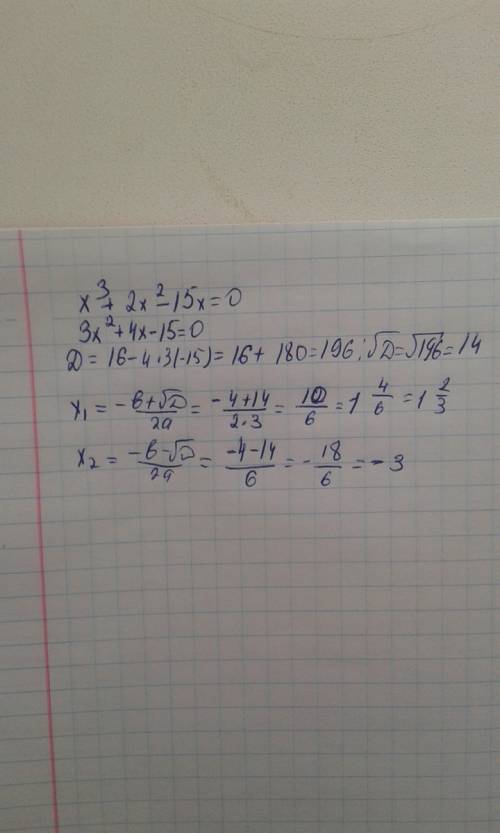 x³ + 2x² - 15x = 0
3x² + 4x - 15 = 0
D = 16 - 4·3(-15) = 16 + 180 = 196; √D = √196 = 14
x₁ = (-b+√D)/2a = (-4+14)/(2·3) = 10/6 = 1 4/6 = 1 2/3
x₂ = (-b-√D)/2a = (-4-14)/6 = -18/6 = -3